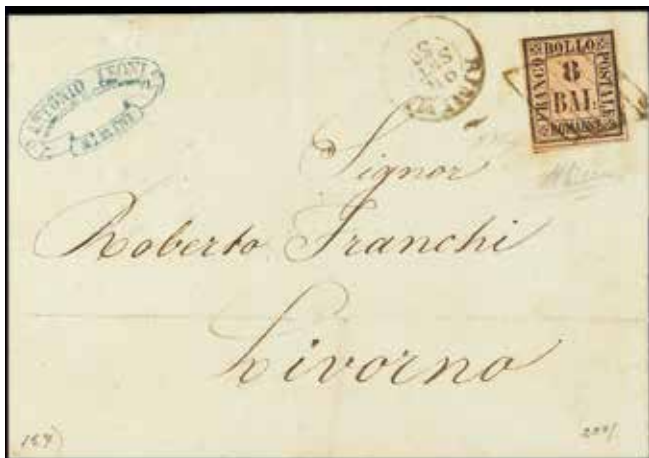 ANTONIO LEONI
RIMINI
RIMINI
FRANCO BOLLO POSTALE ROMAGNE
8
BAI:
Signor
Roberto Franchi
Livorno